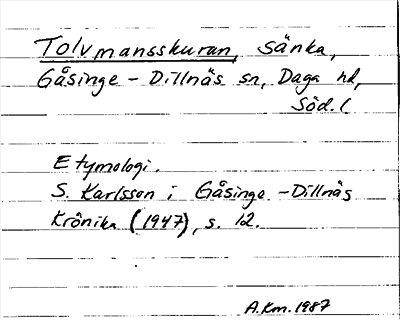 Tolvmansskuran, sänka,
Gåsinge - Dillnäs sn, Daga hd,
Söd. l.
Etymologi.
S. Karlsson i Gåsinge - Dillnäs
Krönika (1947), s. 12.
A.Km. 1987